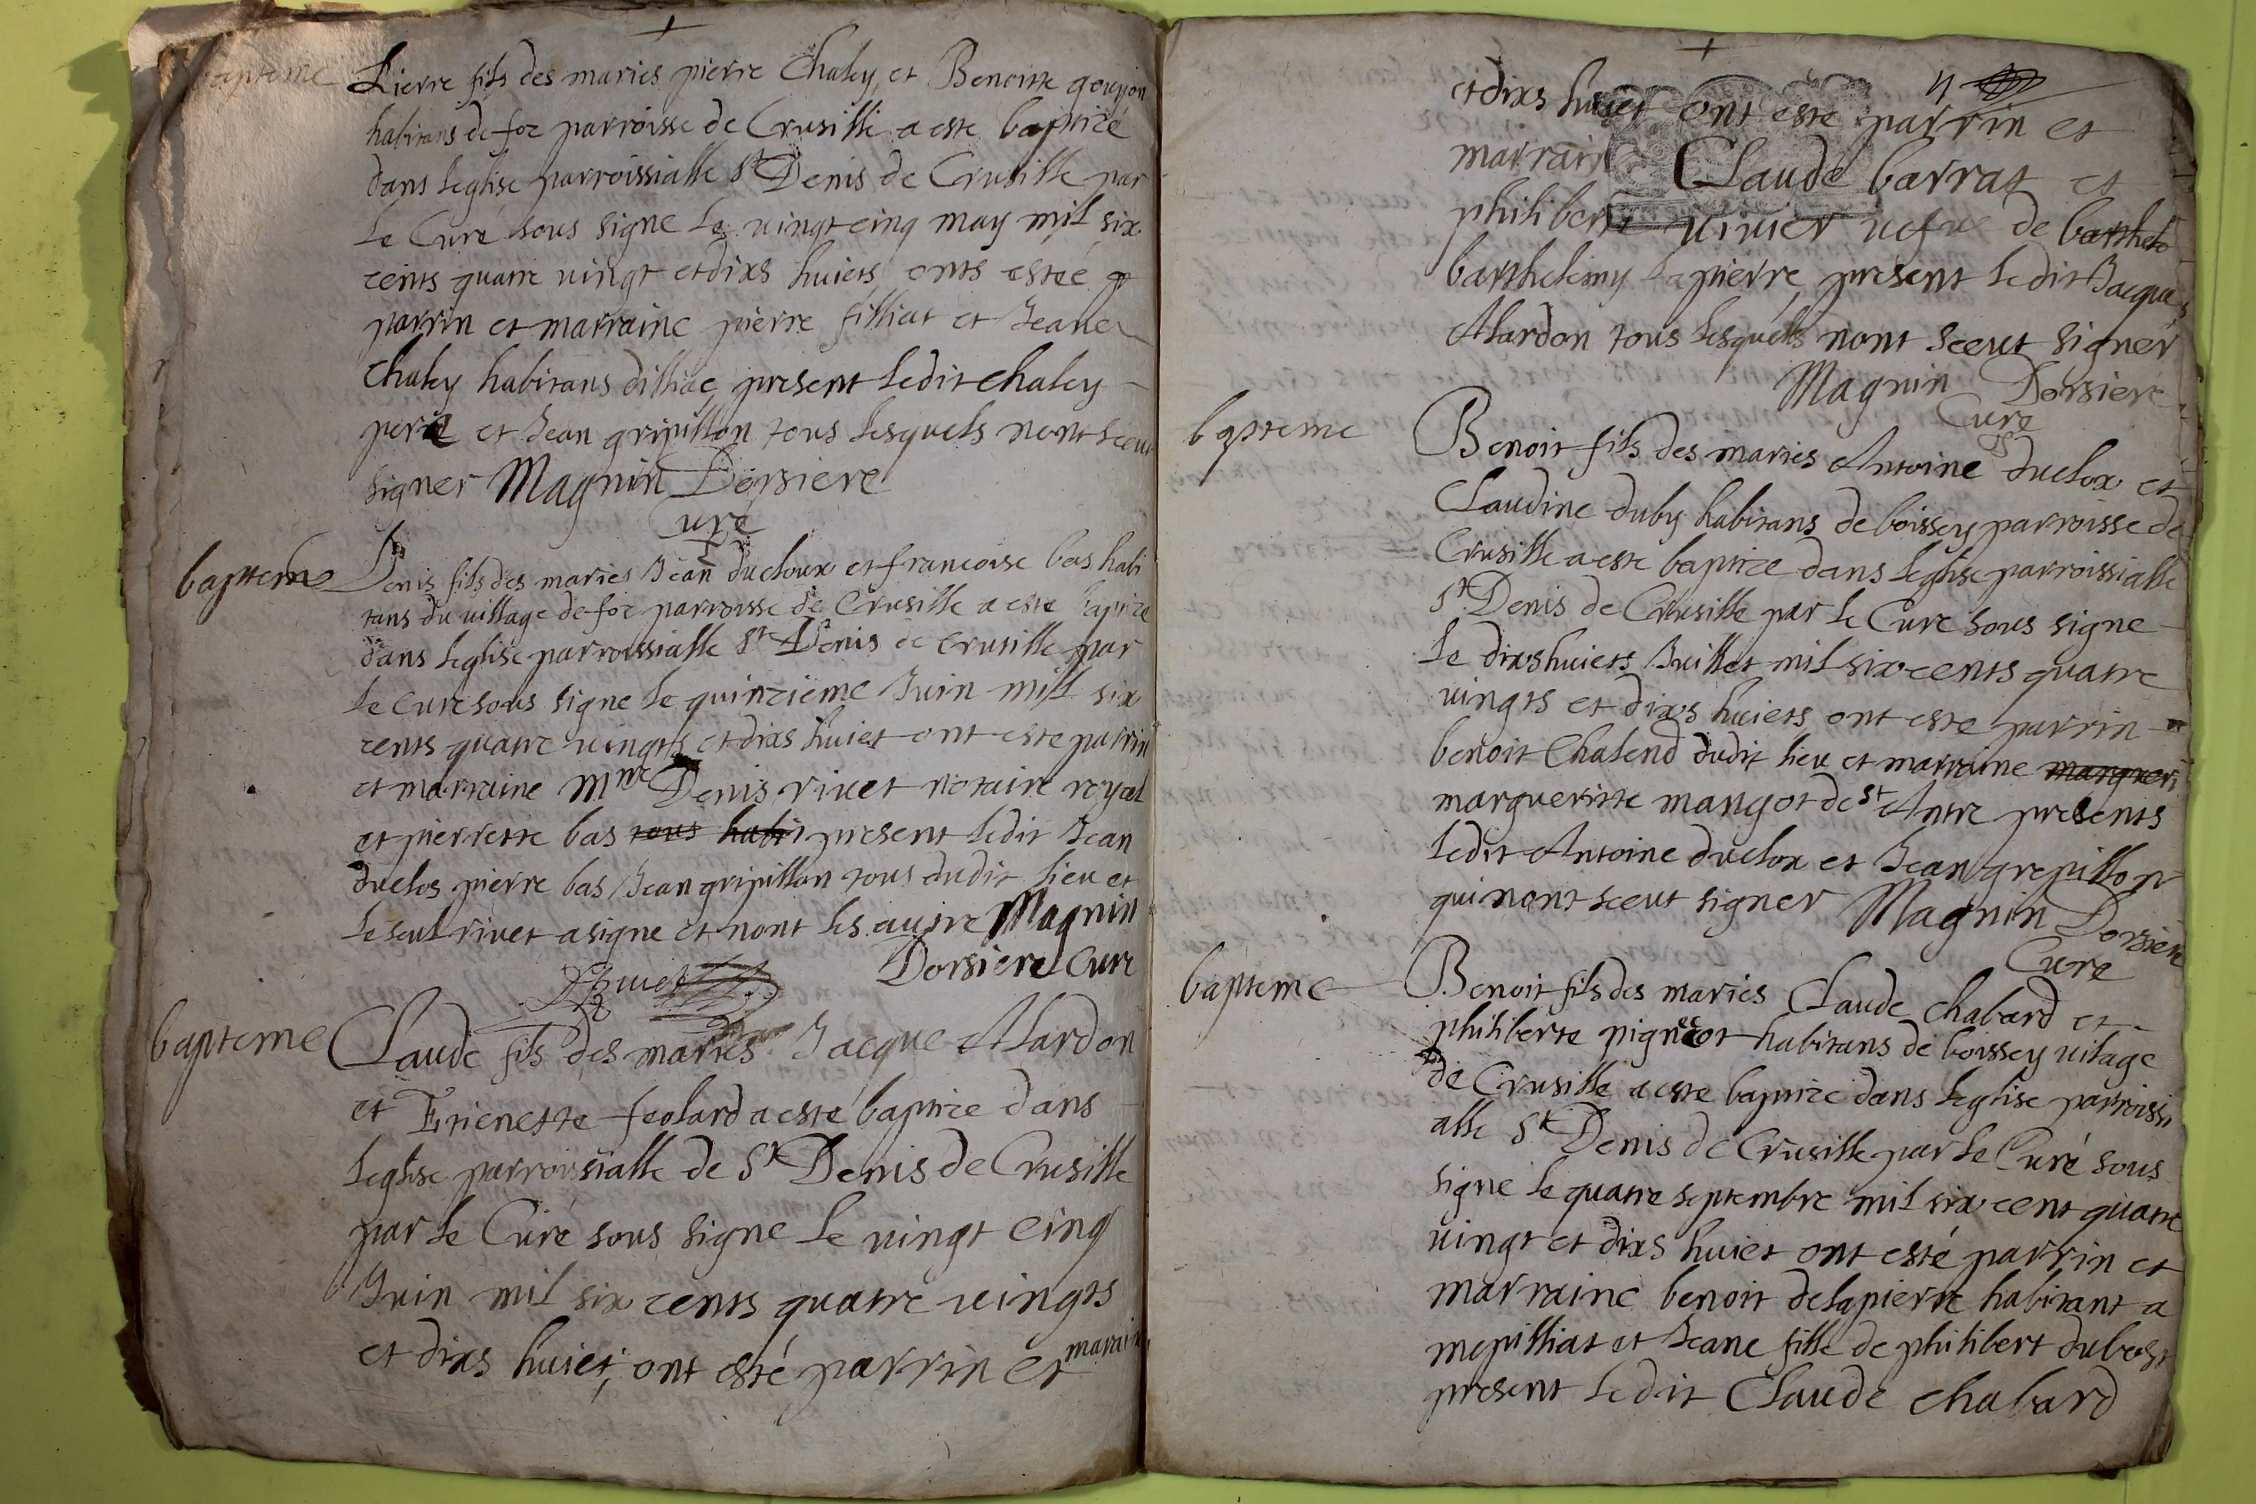 bapteme
Pierre fils des maries pierre Chaley et Benoitte goujon
habitans de foz parroisse de Crusille a este baptizé
dans leglise parroissialle St Denis de Crusille par
le Curé sous signe le vingt cinq may mil six
cents quatre vingt et dixs huiets onts estée
parrin et marraine pierre filliat et Jeane
chaley habitans dilliac present ledit chaley
pere et Jean gripillon tous lesquels nont sceut
signer Magnin Dorsiere
Curé
bapteme
Denis fils des maries Jean ducloux et francoise bas habi
tans du village de foz parroisse de Crusille a este baptize
dans leglise parroissialle St Denis de Crusille par
le cure sous signe le quinzieme Juin mill six
cents quatre vingts et dixs huiet ont este parrin
et marraine Mre Denis rivet notaire royal
et pierrette bas tous habit present ledit Jean
duclos pierre bas Jean gripillon tous dudit lieu et
le seul rivet a signe et nont les autre Magnin
Dorsiere Cure
Rivet
bapteme
Claude fils des maries Jacque Alardon
et Etienette feolard a esté baptize dans
leglise parroissialle de St Denis de Crusille
par le Curé sous signe le vingt cinq
Juin mil six cents quatre vingts
et dixs huiet, ont esté parrin et
et dixs huiet ont este parrin et
marrain Claude barrat et
philiberte vivier vefve de barthele
barthelemy lapierre, present ledit Jacque
Alardon tous lesquels nont sceut signer
Magnin Dorsiere
Cure
bapteme
Benoit fils des maries Antoine duclox et
Claudine duby habitans de boissey parroisse de
Crusille a este baptize dans leglise parroissialle
St Denis de Crusille par le Cure sous signe
le dixshuiets Juillet mil six cents quatre
vingts et dixs huiets ont este parrin
benoit Chalend dudit lieu et marraine margueri
margueritte mangot de St Antre presents
ledit Antoine duclox et Jean grepillon
qui nont sceut signer Magnin Dorsiere
Cure
bapteme
Benoit fils des maries Claude chabard et
philiberte habitans de boissey vilage
de Crusille a este baptize dans leglise parroissi
alle St Denis de Crusille par le Curé sous
signe le quatre septembre mil six cent quatre
vingt et dixs huiet ont esté parrin et
marraine benoit delapierre habitant a
mepilliat et Jeane fille de philibert dubost
present ledit Claude chabard